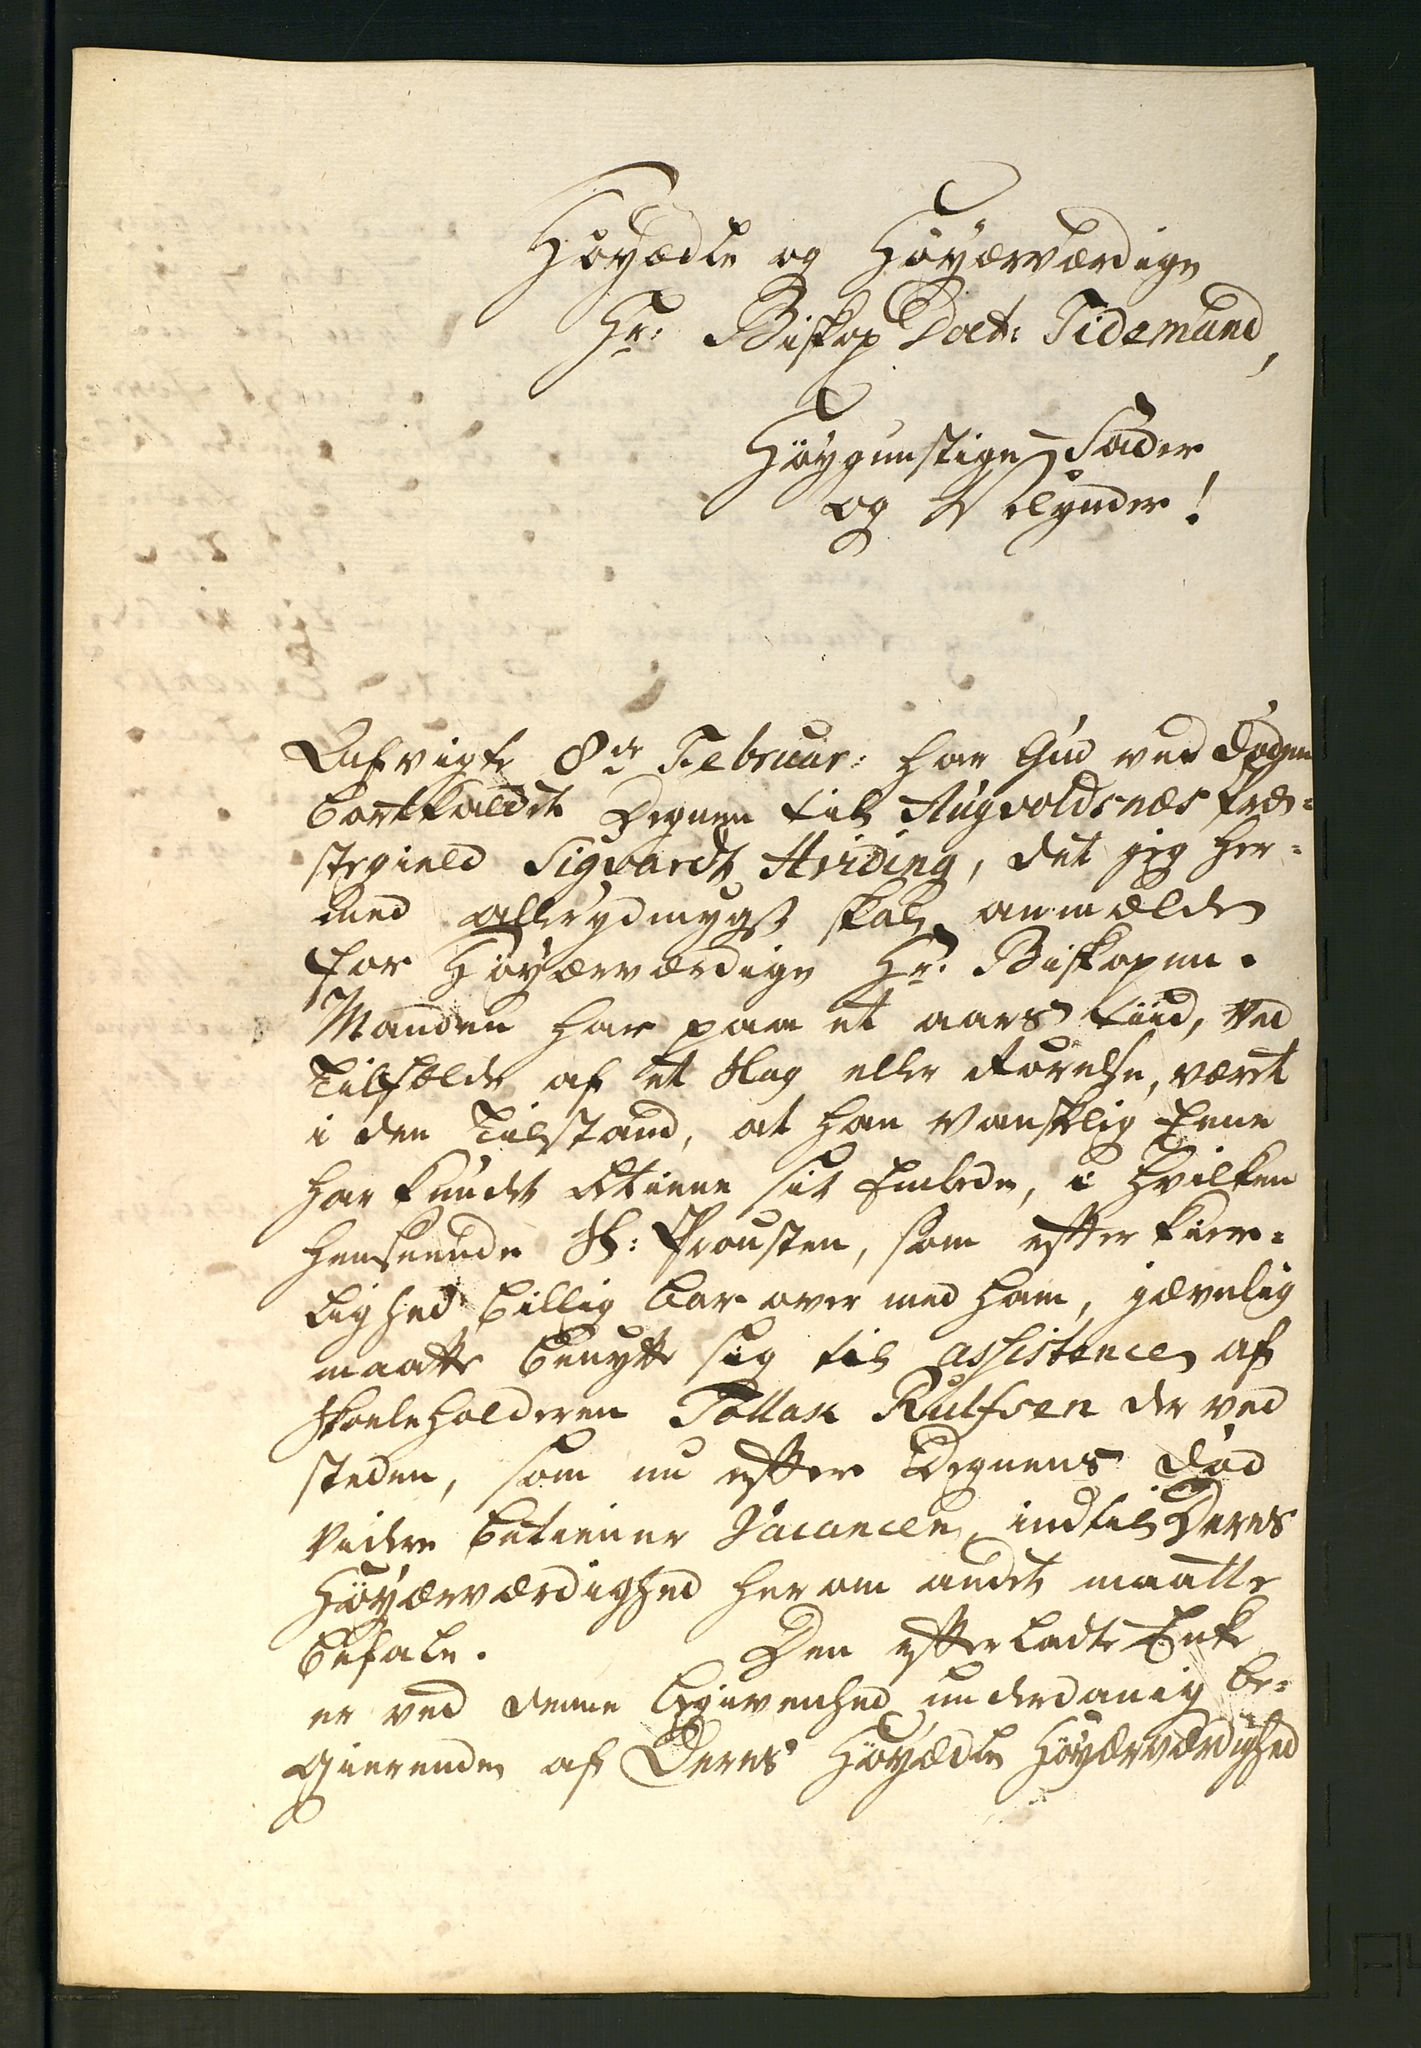 Høyædle og Høyærværdige
Hr: Biskop Doct: Tidemand,
Høygunstige Fader
og Velynder!
Sidstafvigte 8de Februar: har Gud ved Døden
bortkaldet Degnen til Augvoldsnæs Præ-
stegield Sigvardt Heiding, det jeg her-
med allerydmygst skal anmælde
for Høyærværdige Hr: Biskopen.
Manden har paa et aars tiid, ved
Tilfælde af et Slag eller Rørelse, været
i den Tilstand, at han vanskelig Eene
har kundet betiene sit Embede, i hvilken
henseende H: Prousten, som efter kier-
lighed billig bar over med ham, jævnlig
maatte benytte sig til assistence af
Skoeleholderen Tollak Rulfsen der ved
steden, som nu efter Degnens Død
videre betiener Vacancen, indtil Deres
Høyærværdighed herom andet maatte
befale. Den efterladte Enke
er ved denne begivenhed underdanig be-
gierende af Deres Høyædle Høyærværdighed